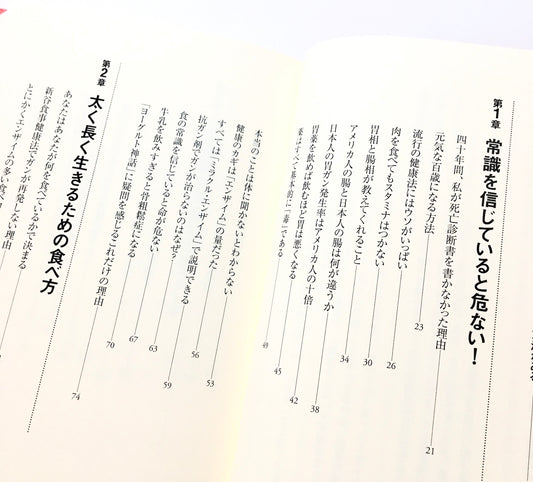 第1章 常識を信じていると危ない！
四十年間、私が死亡診断書を書かなかった理由 21
元気な百歳になる方法 23
流行の健康法にはウソがいっぱい 26
肉を食べてもスタミナはつかない 30
胃相と腸相が教えてくれること 34
アメリカ人の腸と日本人の腸は何が違うか 38
日本人の胃ガン発生率はアメリカ人の十倍 42
胃薬を飲めば飲むほど胃は悪くなる 45
薬はすべて基本的に「毒」である 49
本当のことは体に聞かないとわからない 53
健康のカギは「エンザイム」の量だった 56
すべては「ミラクル・エンザイム」で説明できる 59
抗ガン剤でガンが治らないのはなぜ？ 63
食の常識を信じていると命が危ない 67
牛乳を飲みすぎると骨粗鬆症になる 70
「ヨーグルト神話」に疑問を感じるこれだけの理由 74
第2章 太く長く生きるための食べ方
あなたはあなたが何を食べているかで決まる
新谷食事健康法でガンが再発しない理由
とにかくエンザイムの多い食べ